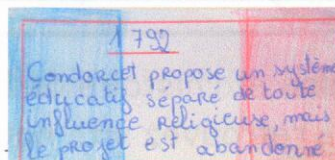 1792
Condorcet propose un système
éducatif séparé de toute
influence religieuse, mais
le projet est abandonné